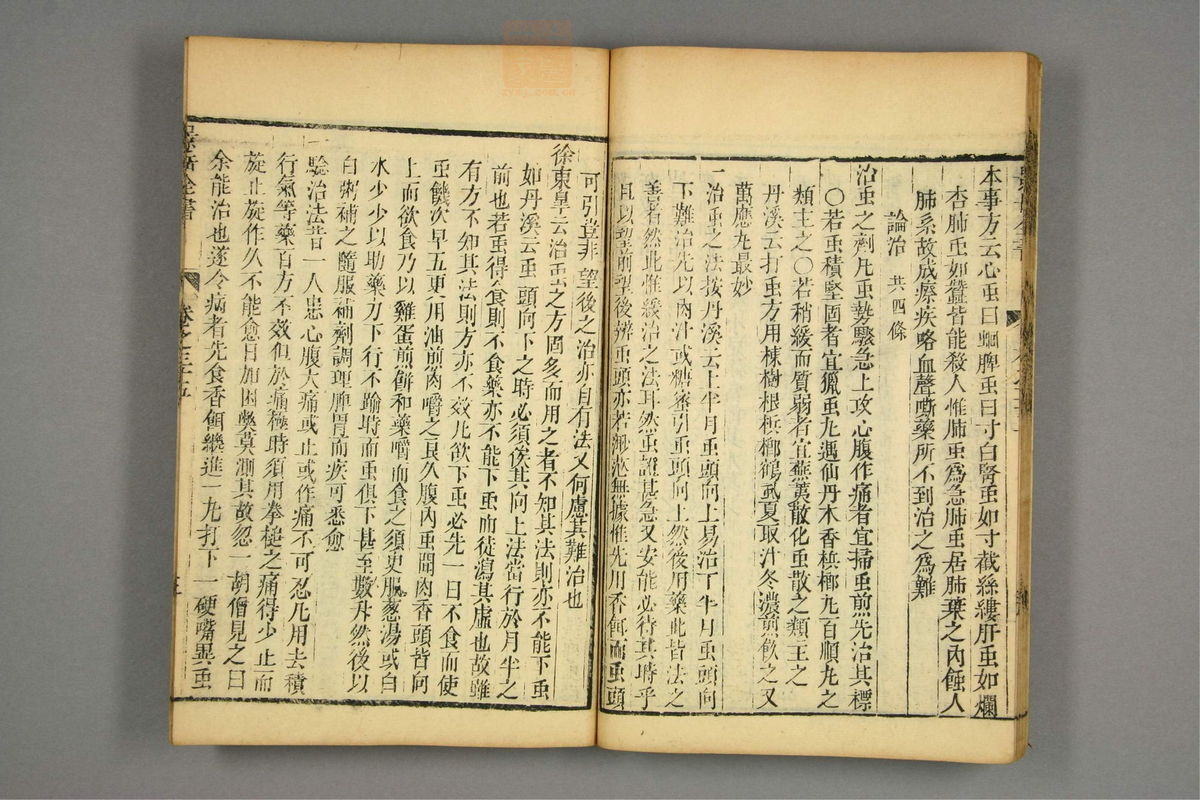 本事方云心虫曰蛔脾虫曰寸白腎虫如寸截絲縷肝虫如爛
杏肺虫如蠶皆能殺人惟肺虫爲急肺虫居肺葉之內蝕人
肺系故成瘵疾咯血聲嘶藥所不到治之爲難
論治 共四條
治虫之劑凡虫勢驟急上攻心腹作痛者宜掃虫煎先治其標
〇若虫積堅固者宜獵虫丸遇仙丹木香梹榔丸百順丸之
類主之〇若稍緩而質弱者宜蕪荑散化虫散之類主之
丹溪云打虫方用楝樹根梹榔鶴虱夏取汁冬濃煎飲之又
萬應丸最妙
一治虫之法按丹溪云上半月虫頭向上易治下半月虫頭向
下難治先以肉汁或糖蜜引虫頭向上然後用藥此皆法之
善者然此惟緩治之法耳然虫證甚急又安能必待其時乎
且以望前望後辨虫頭亦若渺茫無據惟先用香餌而虫頭
可引豈非望後之治亦自有法又何慮其難治也
徐東皐云治虫之方固多而用之者不知其法則亦不能下虫
如丹溪云虫頭向下之時必須俟其向上法當行於月半之
前也若虫得食則不食藥亦不能下虫而徒瀉其虛也故雖
有方不知其法則方亦不效凡欲下虫必先一日不食而使
虫饑次早五更用油煎肉嚼之良久腹內虫聞肉香頭皆向
上而欲食乃以雞蛋煎餅和藥嚼而食之須臾服葱湯或白
水少少以助藥力下行不踰時而虫俱下甚至數升然後以
白粥補之隨服補劑調理脾胃而疾可悉愈
一驗治法昔一人患心腹大痛或止或作痛不可忍凡用去積
行氣等藥百方不效但於痛極時須用拳搥之痛得少止而
旋止旋作久不能愈日加困獘莫測其故忽一胡僧見之曰
余能治也遂令病者先食香餌繼進一丸打下一硬嘴異虫
全書
卷之三十五